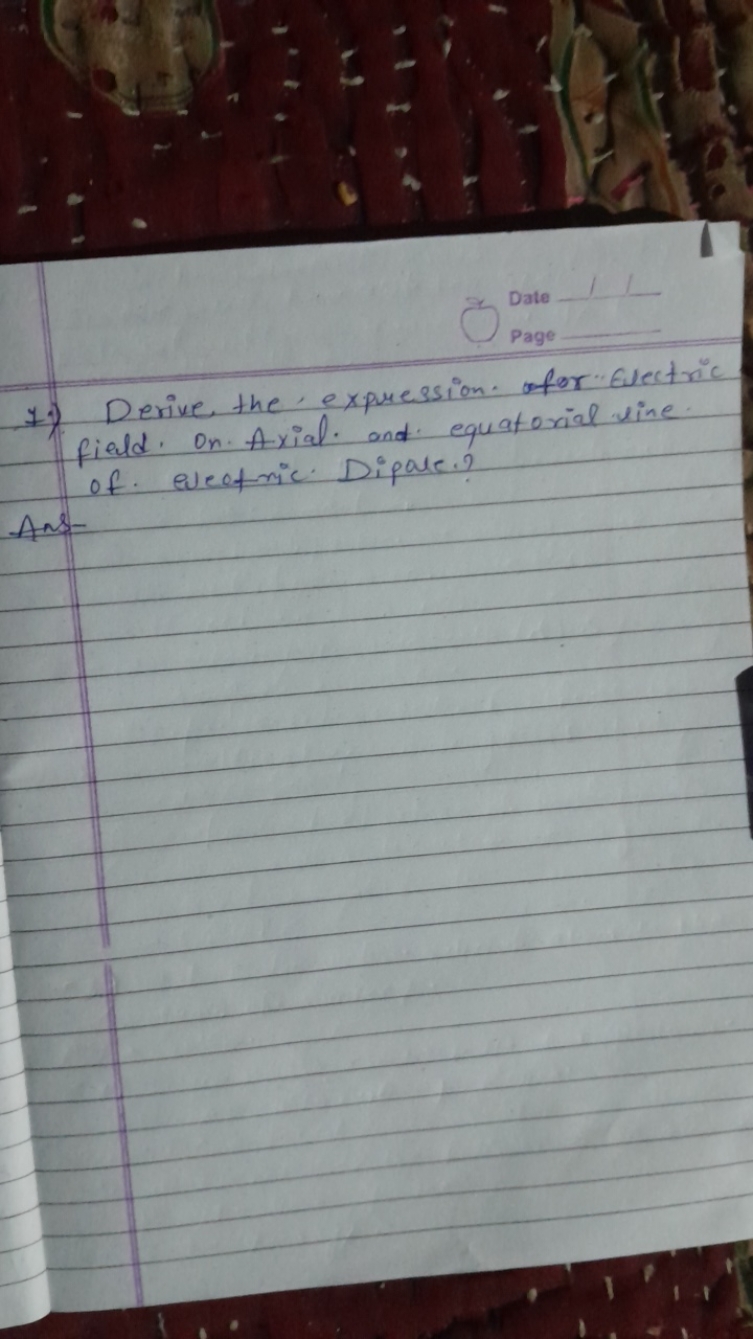 Date / /
Page
1.) Derive the expression for Electric
field on Axial and equatorial line
of electric Dipole.?
Ans-